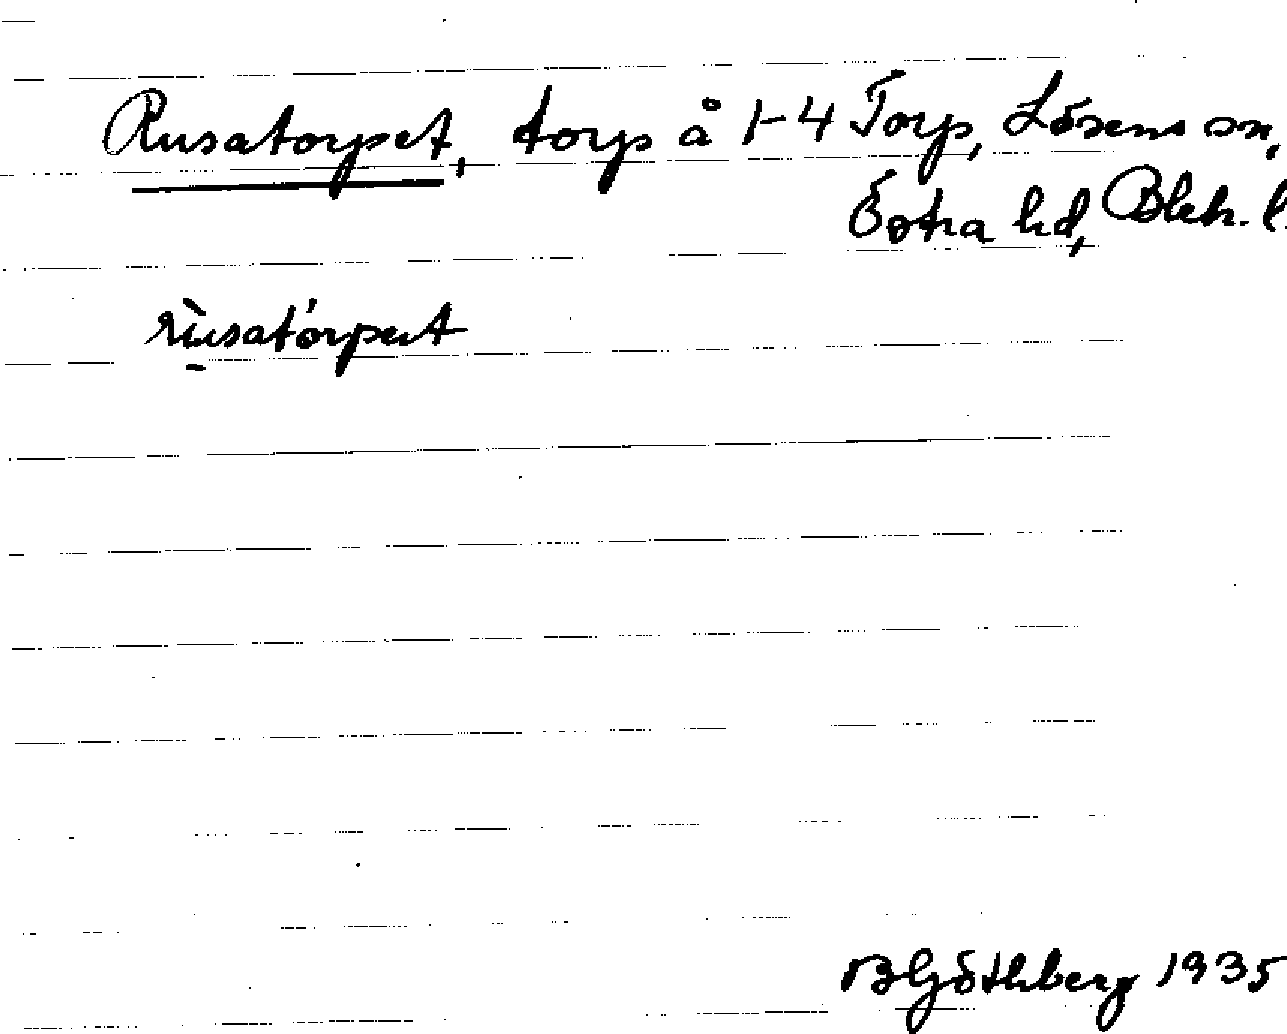 Rusatorpet, torp å 1-4 Torp, Lösens sn,
Östra hd, Blek. l.
rùsatórpet
B Göthberg 1935